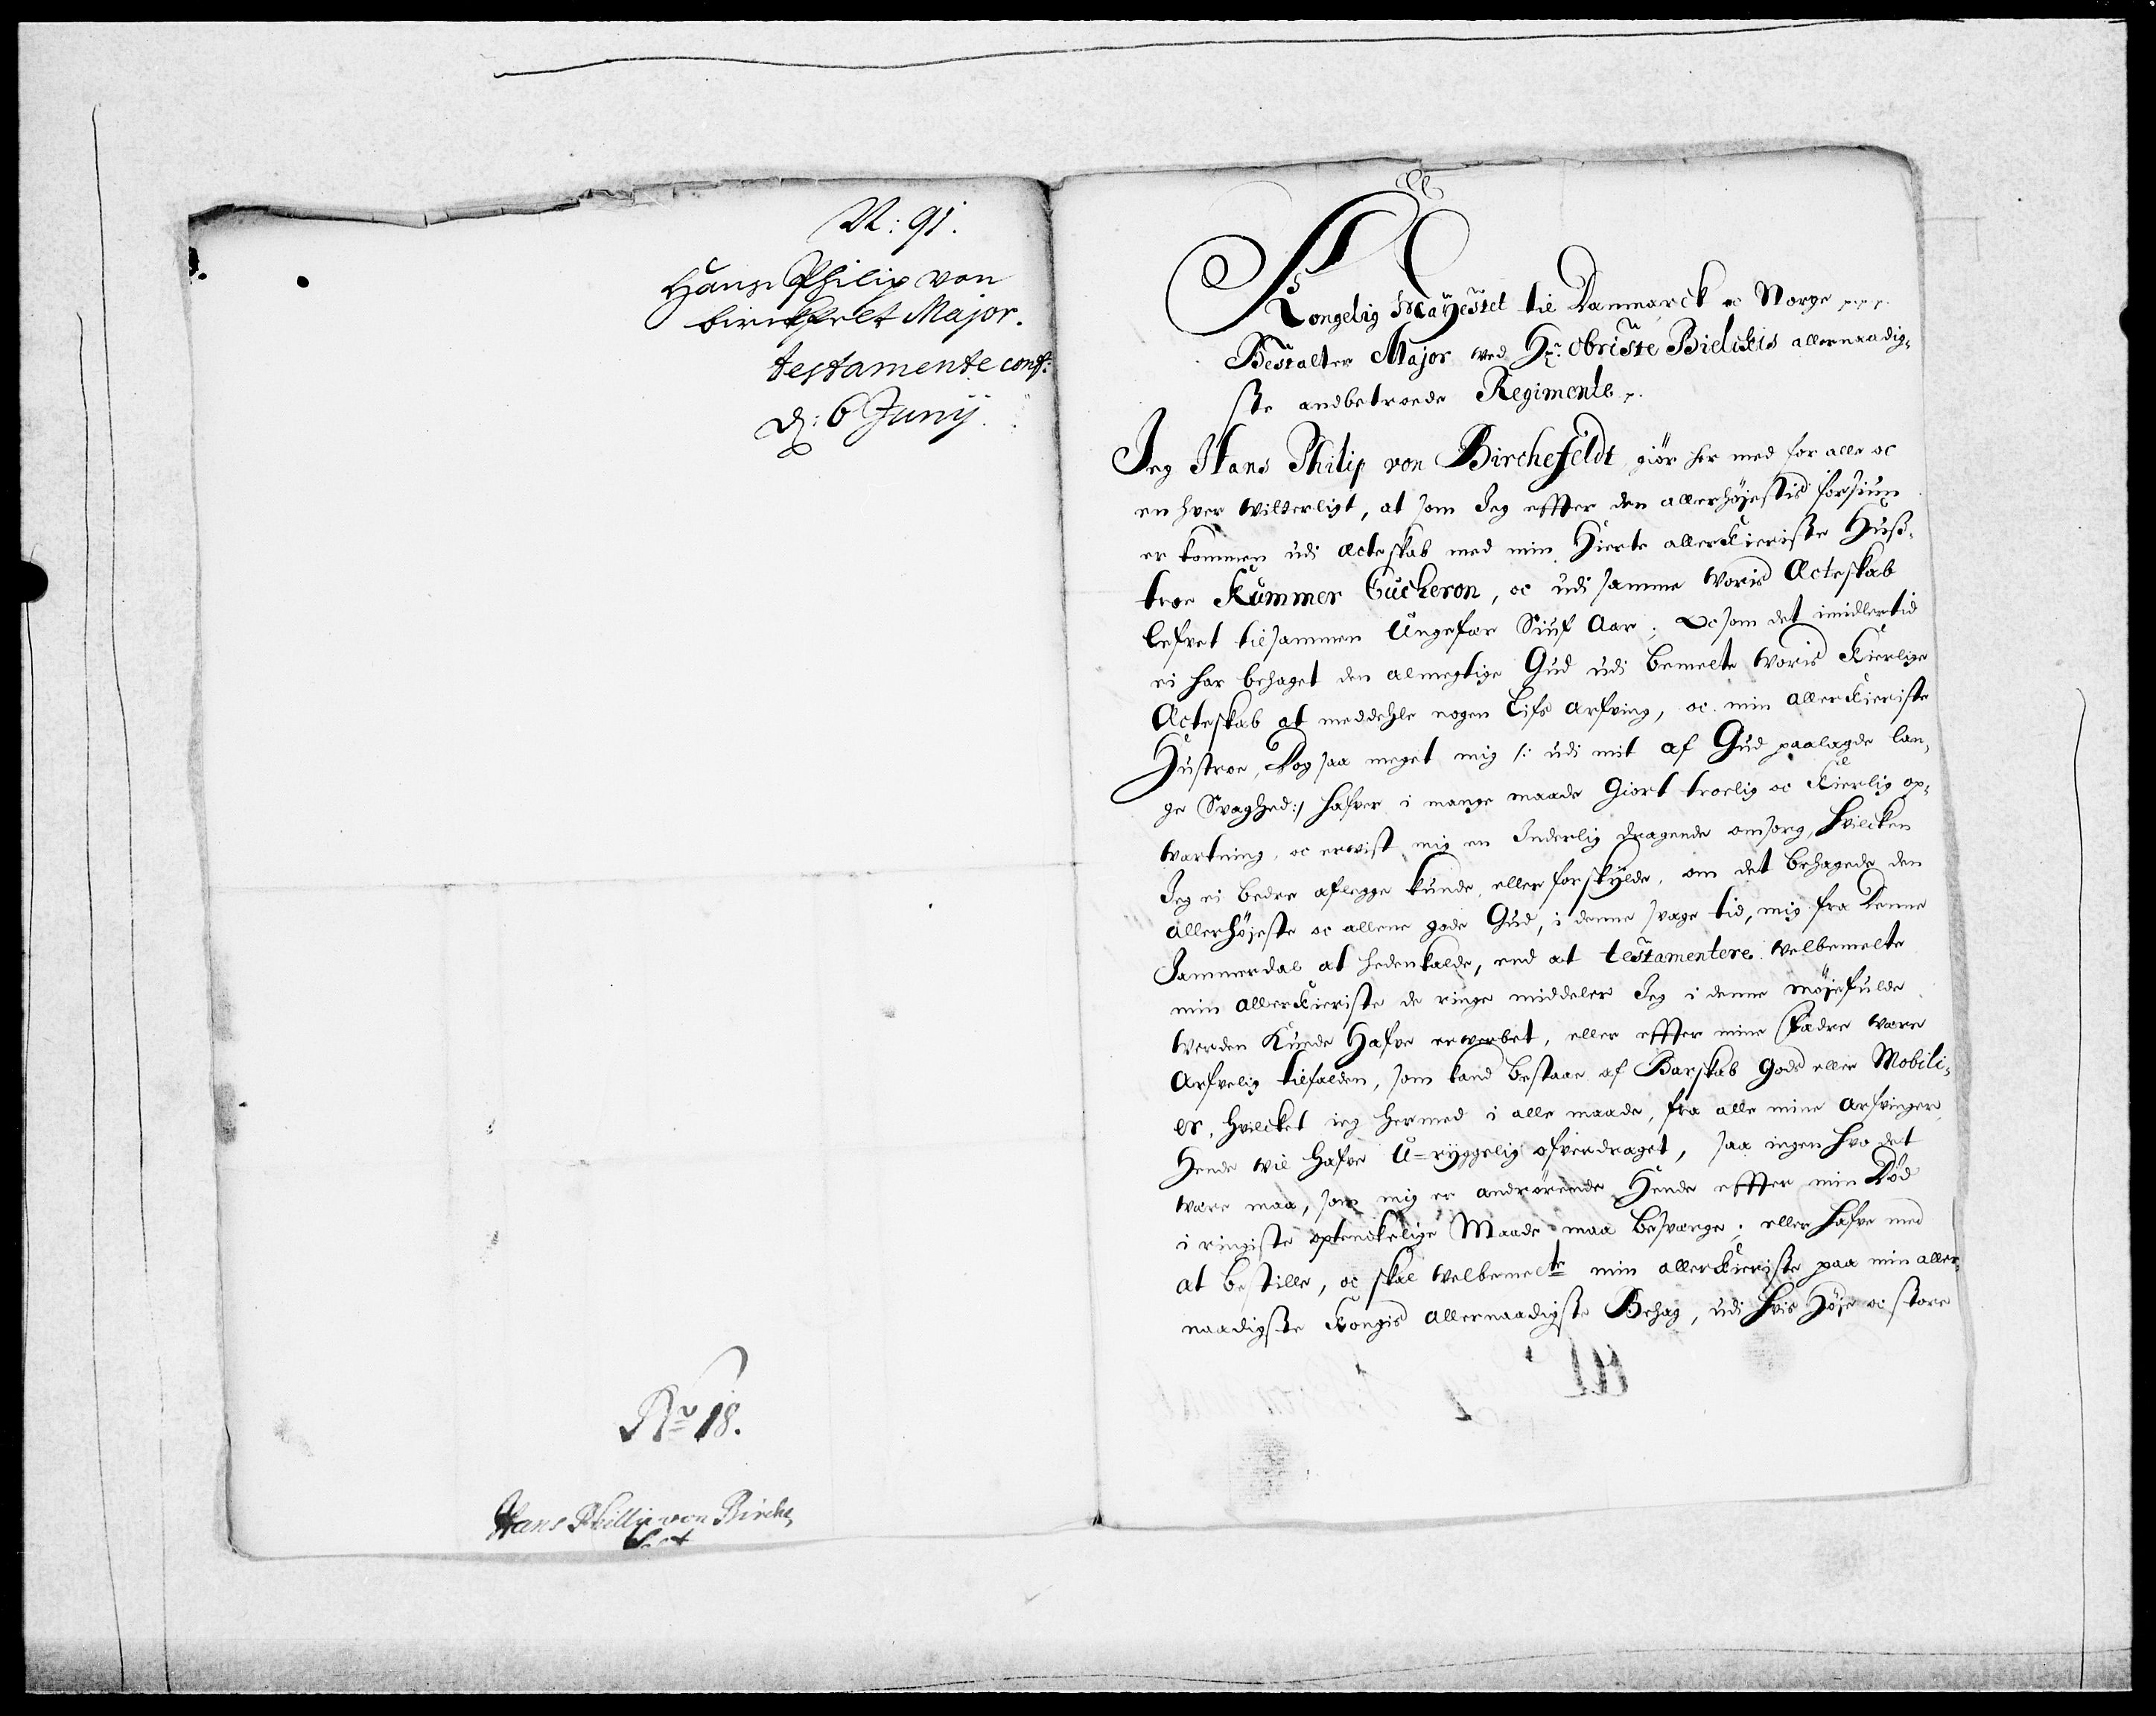 N: 91.
Hans Philip von
birckfelt Major.
testamente conf:
d: 6 Junij.
No 18.
Hans Phillip von Birche
felt
Kongelig Mayestet til Danmarck oc Norge p.p.p.
Bestalter Major ved Hr: Obriste Bielckis allernaadig-
ste andbetroede Regimente p.
Jeg Hans Philip von Birchefeldt giör her med for alle oc
en hver witterligt, at som Jeg effter den allerhöjestis forsiun
er kommen udi ecteskab med min Hierte allerkieriste Huß-
troe Kummer Cucheron, oc udi samme woris Ecteskab
lefvet tilsammen Ungefær Siuf Aar; Oc som det imidlertid
ei har behaget den almegtige Gud udi bemelte woris Kierlige
Ecteskab at meddehle nogen Lifs arfving, oc min allerkieriste
Hustroe, Dog saa meget mig /: udi mit af Gud paalagde lan-
ge Svaghed:/ hafver i mange maade giort troelig oc Kierlig op-
wartning, oc erwist mig en Inderlig dragende omsorg, hvilcken
Jeg ei bedre aflegge kunde, eller forskylde, om det behagede den
allerhöjeste oc allene gode Gud, i denne svage tid, mig fra Denne
Jammerdal at hedenkalde, end at testamentere welbemelte
min allerkieriste de ringe middeler Jeg i denne möjefulde
werden Kunde Hafve erwerbet, eller effter mine Fædre være
Arfvelig tilfalden, som kand bestaae af Barskab gods eller Mobili-
er, hvilcket ieg hermed i alle maade, fra alle mine arfvinger,
Hende wil hafve U-ryggelig ofverdraget, saa ingen hvo det
være maa, som mig er andrörende Hende effter min Död
i ringiste optenckelige Maade maa besværge; eller hafve med
at bestille, oc skal welbemelte min allerkieriste paa min aller-
naadigste Kongis allernaadigste Behag, udi hvis Höje oc store